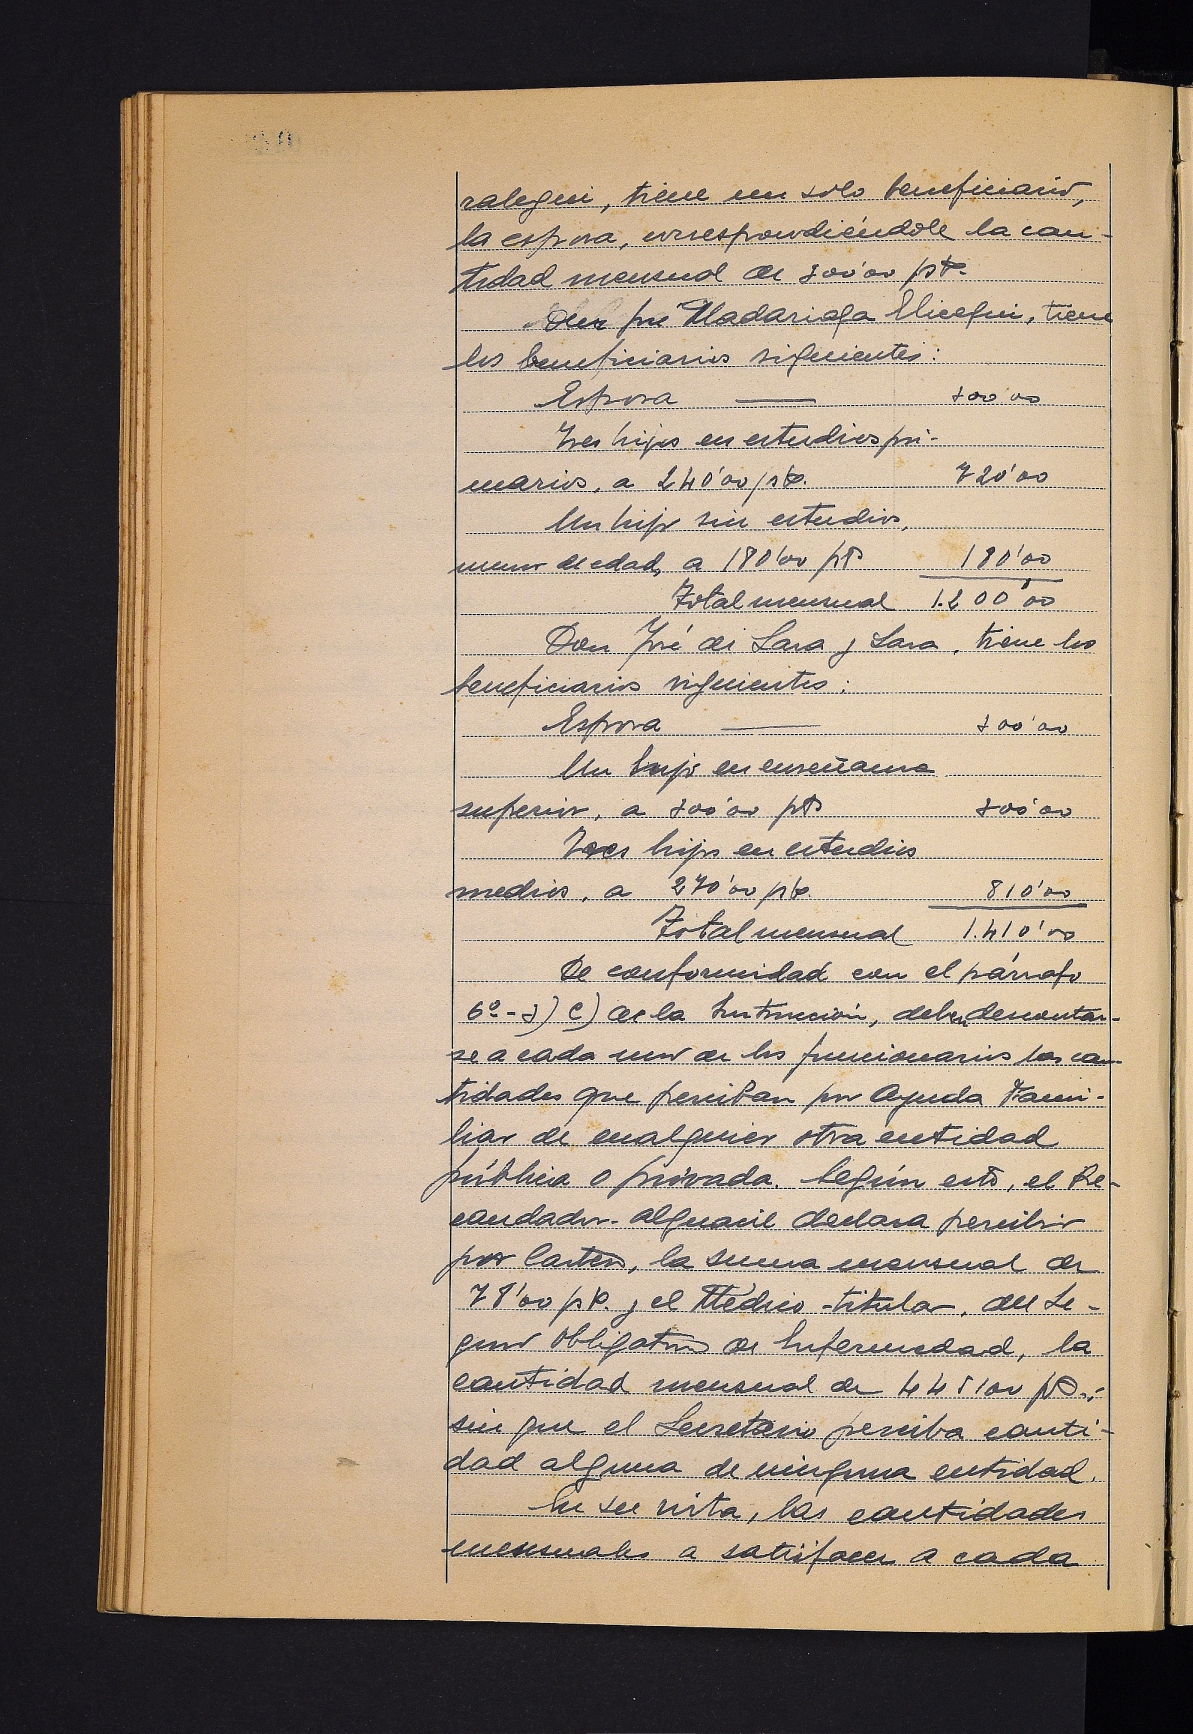 ralegui, tiene un solo beneficiario,
la esposa, correspondiéndole la can-
tidad mensual de 300'00 pts.
Don José Madariaga Elicegui, tiene
los beneficiarios siguientes:
Esposa — 300'00
Tres hijos en estudios pri-
marios, a 240'00 pts. 720'00
Un hijo sin estudios,
menor de edad, a 180'00 pts 180'00
Total mensual 1.200'00
Don José de Lara y Lara, tiene los
beneficiarios siguientes:
Esposa — 300'00
Un hijo en enseñanza
superior, a 300'00 pts 300'00
Tres hijos en estudios
medios, a 270'00 pts. 810'00
Total mensual 1.410'00
De conformidad con el párrafo
6º - c) de la Instrucción, deben descontar-
se a cada uno de los funcionarios las can-
tidades que perciban por Ayuda Fami-
liar de cualquier otra entidad
pública o privada. Según esto, el Re-
caudador-alguacil declara percibir
por Cartero, la suma mensual de
78'00 pts. y el Médico-titular, del Se-
guro Obligatorio de Enfermedad, la
cantidad mensual de 445'00 pts.;
sin que el Secretario perciba canti-
dad alguna de ninguna entidad.
En su vista, las cantidades
mensuales a satisfacer a cada